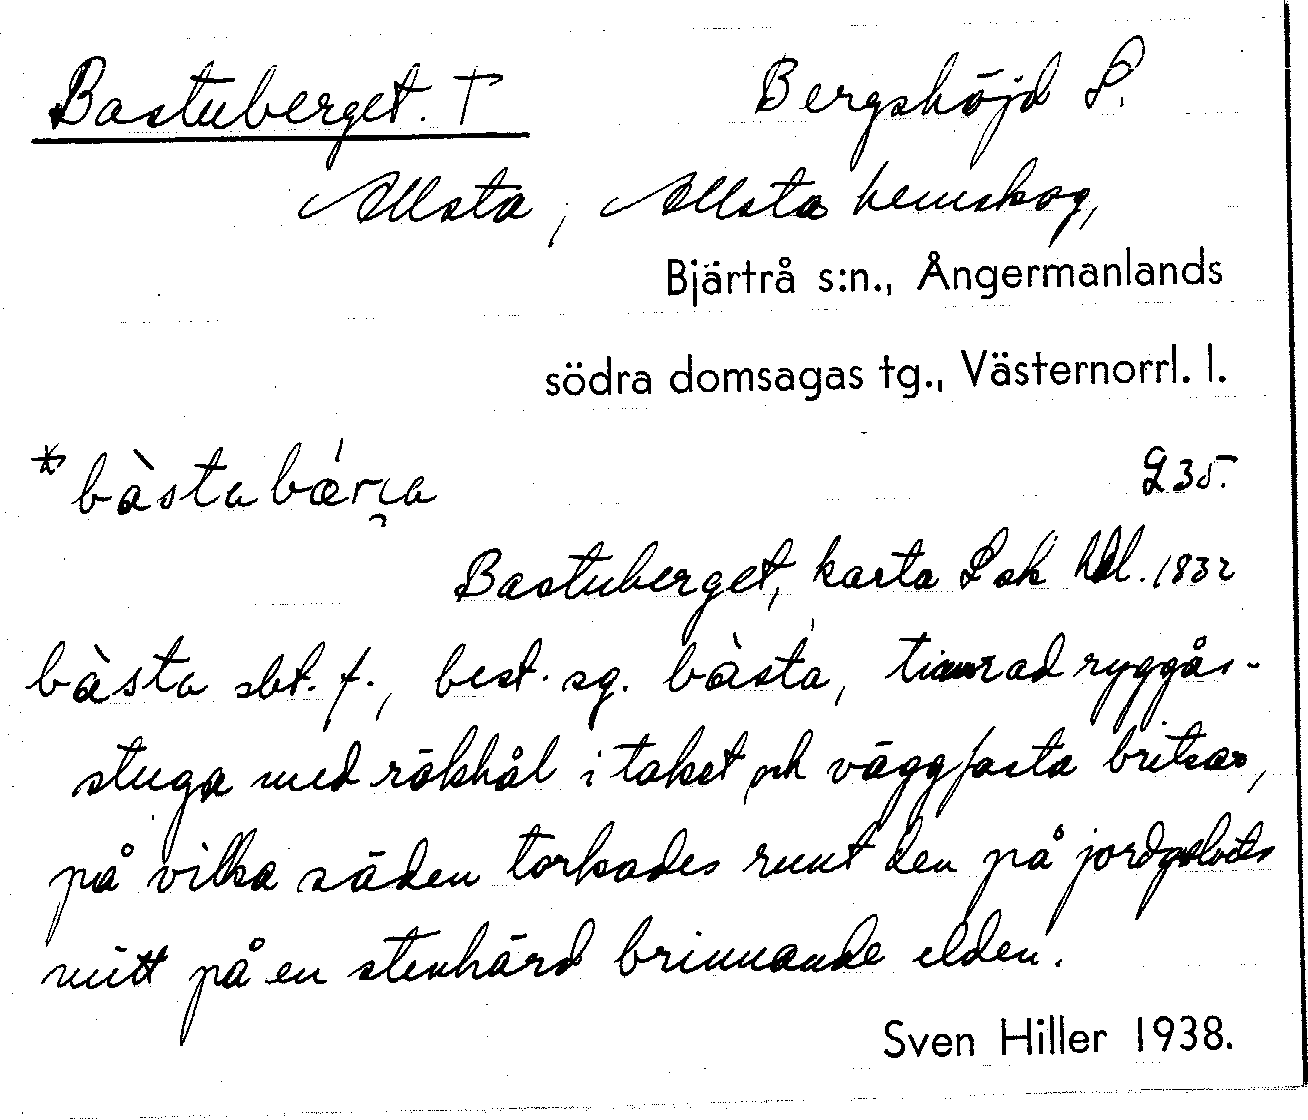 Bastuberget. † Bergshöjd S.
Allsta, Allsta hemskog,
Bjärtrå s:n., Ångermanlands
södra domsagas tg., Västernorrl. l.
*bàsta bǽrja 235.
Bastuberget, karta Lsk hdl. 1832
bàsta sbt. f., best. sg. bàsta, timrad ryggås-
stuga med rökhål i taket och väggfasta britsar,
på vilka säden torkades runt den på jordgolvets
mitt på en stenhärd brinnande elden.
Sven Hiller 1938.